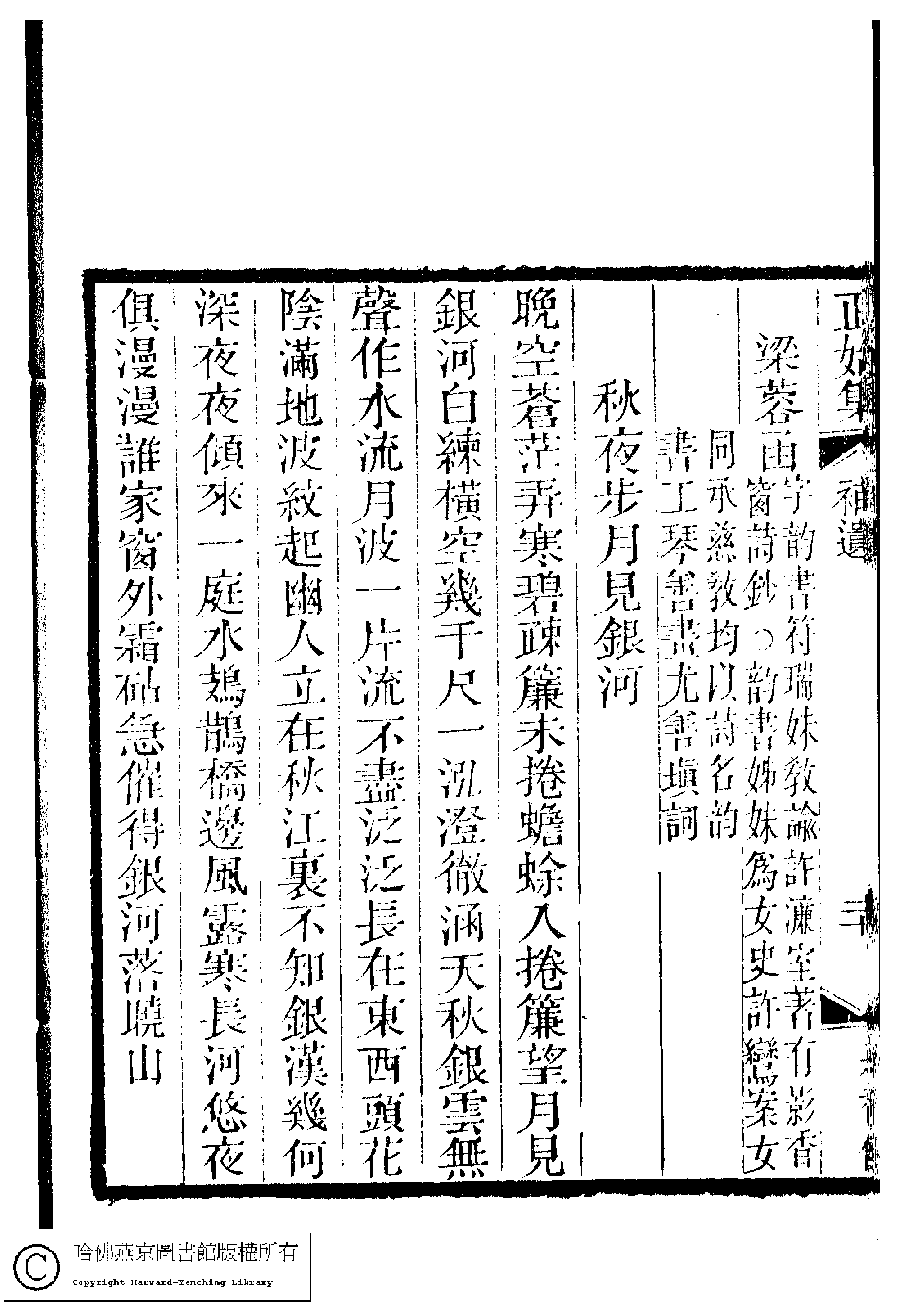 正始集 補遺 三
梁蓉函
字韵書符瑞妹教諭許濂室著有影香
窗詩鈔○韵書姊妹爲女史許鸞案女
同承慈教均以詩名韵
書工琴善畫尤善塡詞
秋夜步月見銀河
晚空蒼茫弄寒碧疎簾未捲蟾蜍入捲簾望月見
銀河白練橫空幾千尺一泓澄徹涵天秋銀雲無
聲作水流月波一片流不盡泛泛長在東西頭花
陰滿地波紋起幽人立在秋江裏不知銀漢幾何
深夜夜傾來一庭水鳷鵲橋邊風露寒長河悠夜
俱漫漫誰家窗外霜砧急催得銀河落曉山
哈佛燕京圖書館版權所有
Copyright Harvard-Yenching Library